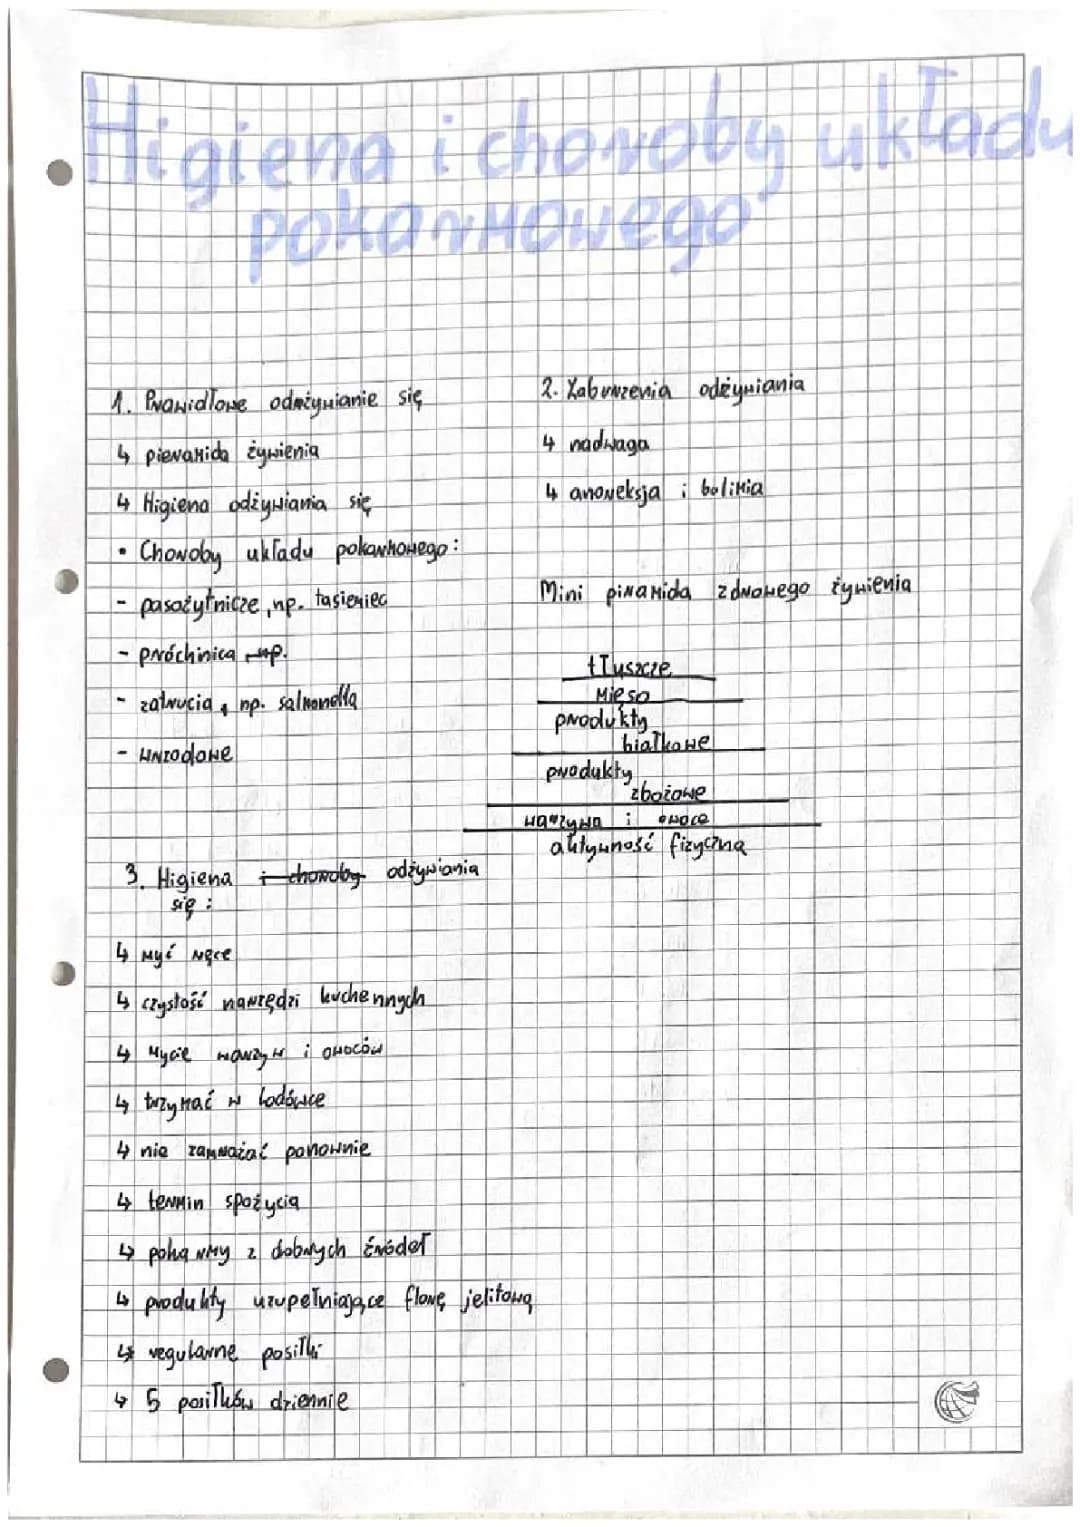 Higiena i choroby układu
pokarmowego
1. Prawidłowe odrzywianie się
↳ pieramida żywienia
↳ Higiena odżywiania się
• Choroby układu pokarmowego:
- pasożytnicze, np. tasiemiec
- próchinica np.
- zatrucia, np. salmonella
- wrzodowe
2. Zaburzenia odżywiania
↳ nadwaga
↳ anoreksja i bulimia
Mini piramida zdrowego żywienia
tłuszcze
mięso
produkty
białkowe
produkty
zbożowe
warzywa i owoce
aktywność fizyczna
3. Higiena i choroby odżywiania
się:
↳ myć ręce
↳ czystość narzędzi kuchennych
↳ mycie warzyw i owoców
↳ trzymać w lodówce
↳ nie zamrażać ponownie
↳ termin spożycia
↳ pokarmy z dobrych źródeł
↳ produkty uzupełniające florę jelitową
↳ regularne posiłki
↳ 5 posiłków dziennie